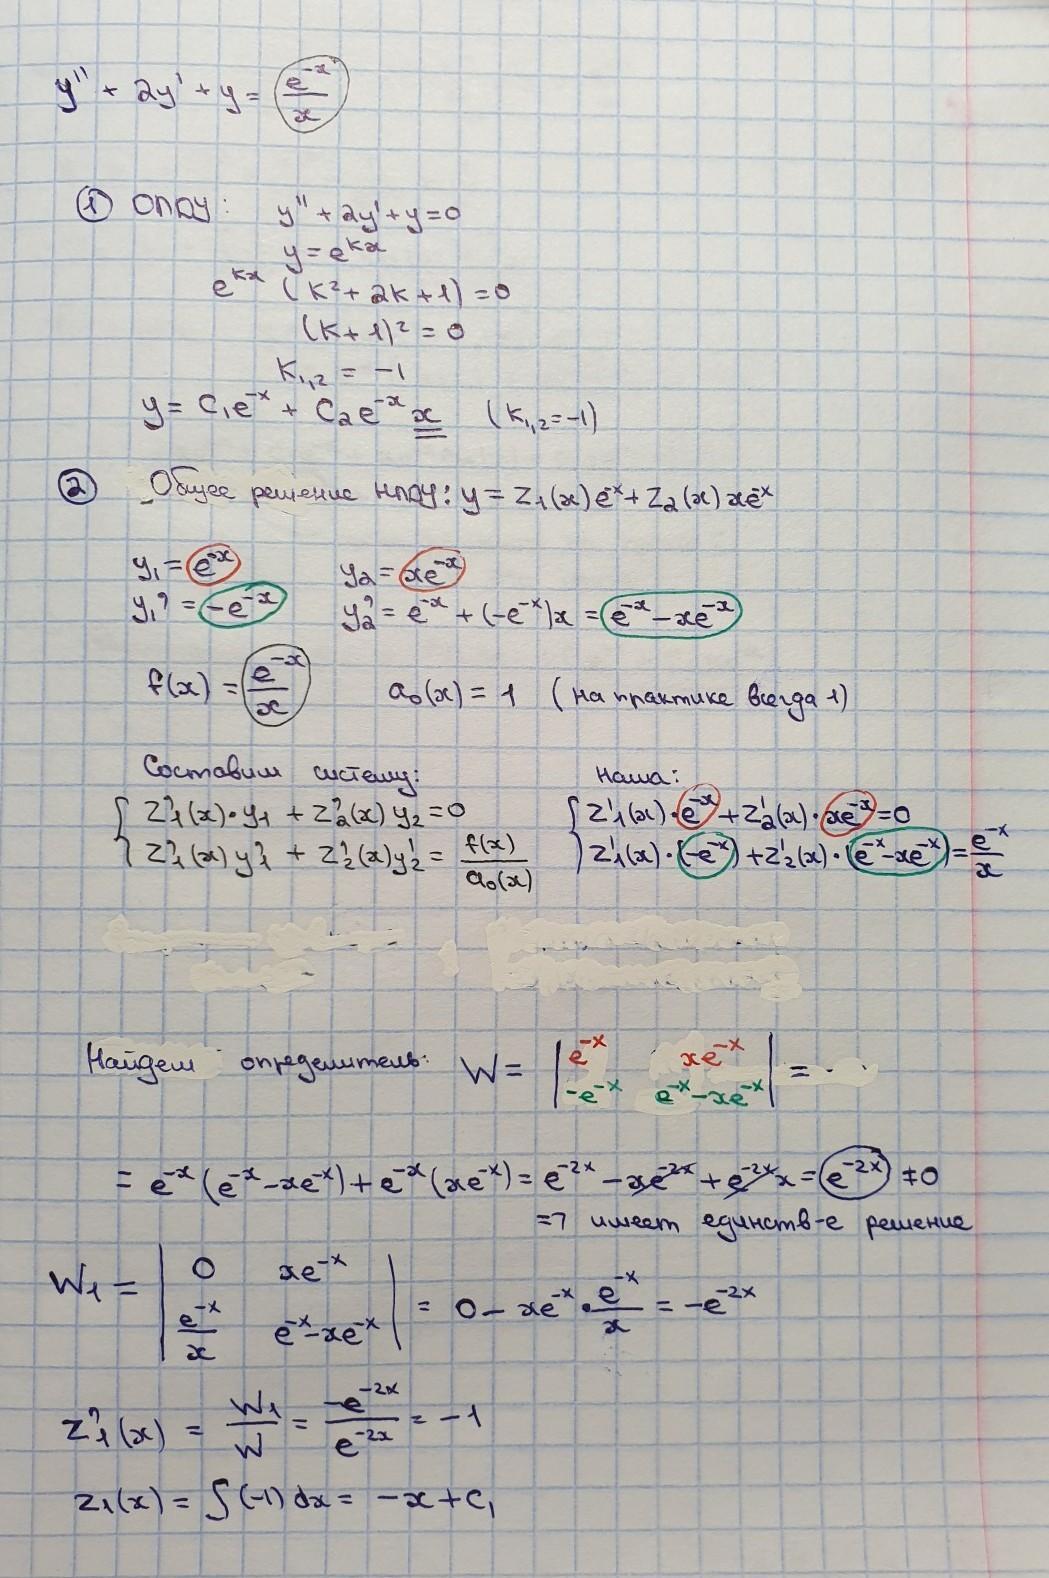 y'' + 2y' + y = e^{-x}/x
① ОЛДУ: y'' + 2y' + y = 0
y = e^{kx}
e^{kx} (k² + 2k + 1) = 0
(k + 1)² = 0
k_{1,2} = -1
y = C₁e^{-x} + C₂e^{-x} x (k_{1,2} = -1)
② Общее решение НЛДУ: y = z₁(x)e^{-x} + z₂(x)xe^{-x}
y₁ = e^{-x} y₂ = xe^{-x}
y₁' = -e^{-x} y₂' = e^{-x} + (-e^{-x})x = e^{-x} - xe^{-x}
f(x) = e^{-x}/x a₀(x) = 1 (на практике всегда 1)
Составим систему: наша:
{ z₁'(x)·y₁ + z₂'(x)y₂ = 0 { z₁'(x)·e^{-x} + z₂'(x)·xe^{-x} = 0
z₁'(x)y₁' + z₂'(x)y₂' = f(x)/a₀(x) z₁'(x)·(-e^{-x}) + z₂'(x)·(e^{-x} - xe^{-x}) = e^{-x}/x
Найдем определитель: W = | e^{-x} xe^{-x} | =
| -e^{-x} e^{-x} - xe^{-x} |
= e^{-x}(e^{-x} - xe^{-x}) + e^{-x}(xe^{-x}) = e^{-2x} - xe^{-2x} + e^{-2x}x = e^{-2x} ≠ 0
=> имеет единств-е решение
W₁ = | 0 xe^{-x} |
| e^{-x}/x e^{-x} - xe^{-x} | = 0 - xe^{-x} · e^{-x}/x = -e^{-2x}
z₁'(x) = W₁/W = -e^{-2x}/e^{-2x} = -1
z₁(x) = ∫(-1)dx = -x + C₁